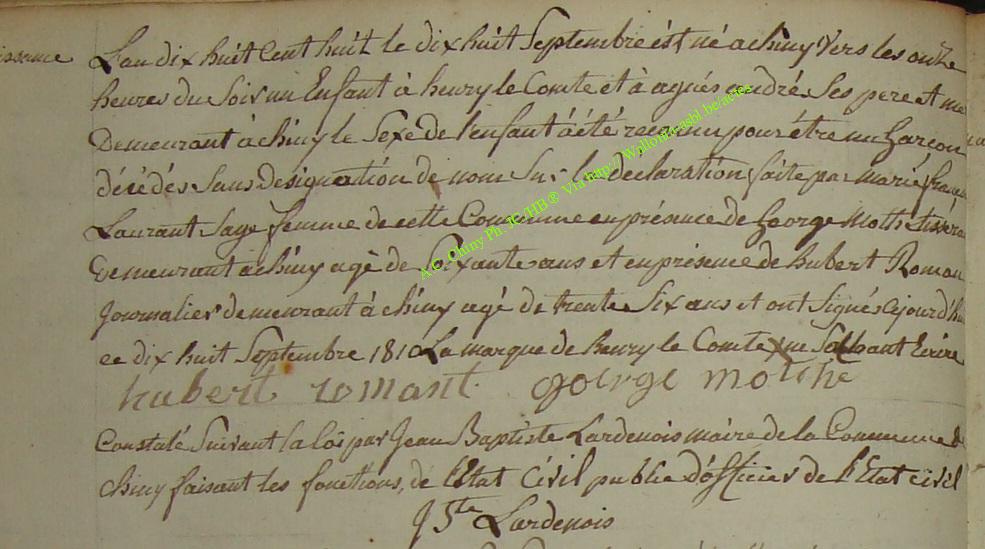 issance
L'an dix huit Cent huit le dix huit Septembre ést né a chiny vers les onze
heures du Soir un Enfant à henry le Comte et à agnés andré Ses pere et me
Demeurant à chiny le Sexe de l'enfant à été reconnu pour étre un Garcon
décédés Sans designation de nom Sur la declaration faite par marie françoi
Laurant Sage femme de cette Commune en présence de George Mothe tisseran
Demeurant à chiny agé de Soixante ans et en présence de hubert Roman
Journalier demeurant à chiny agé de trente Six ans et ont Signés ajourd'hui
ce dix huit Septembre 1810 La marque de henry le Comte X ne Sachant Ecrire
hubert romant george mothe
Constalé Suivant la loi par Jean Baptiste Lardenois maire de la Commune de
chiny faisant les fonctions, de l'Etat Civil public d'officier de l'Etat civil
J Bte Lardenois
A.C. Chiny Ph. JC/HB ® Via http://Wallonia-asbl.be/actes